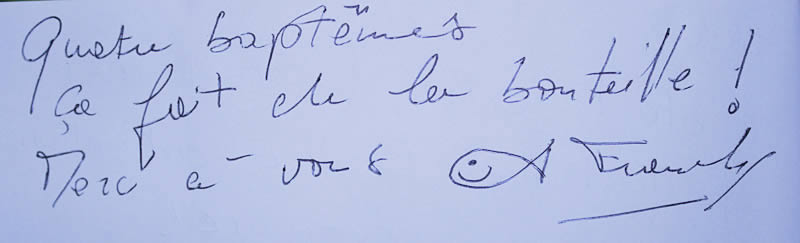 Quatre baptêmes
ça fait de la bouteille !
Merci à vous